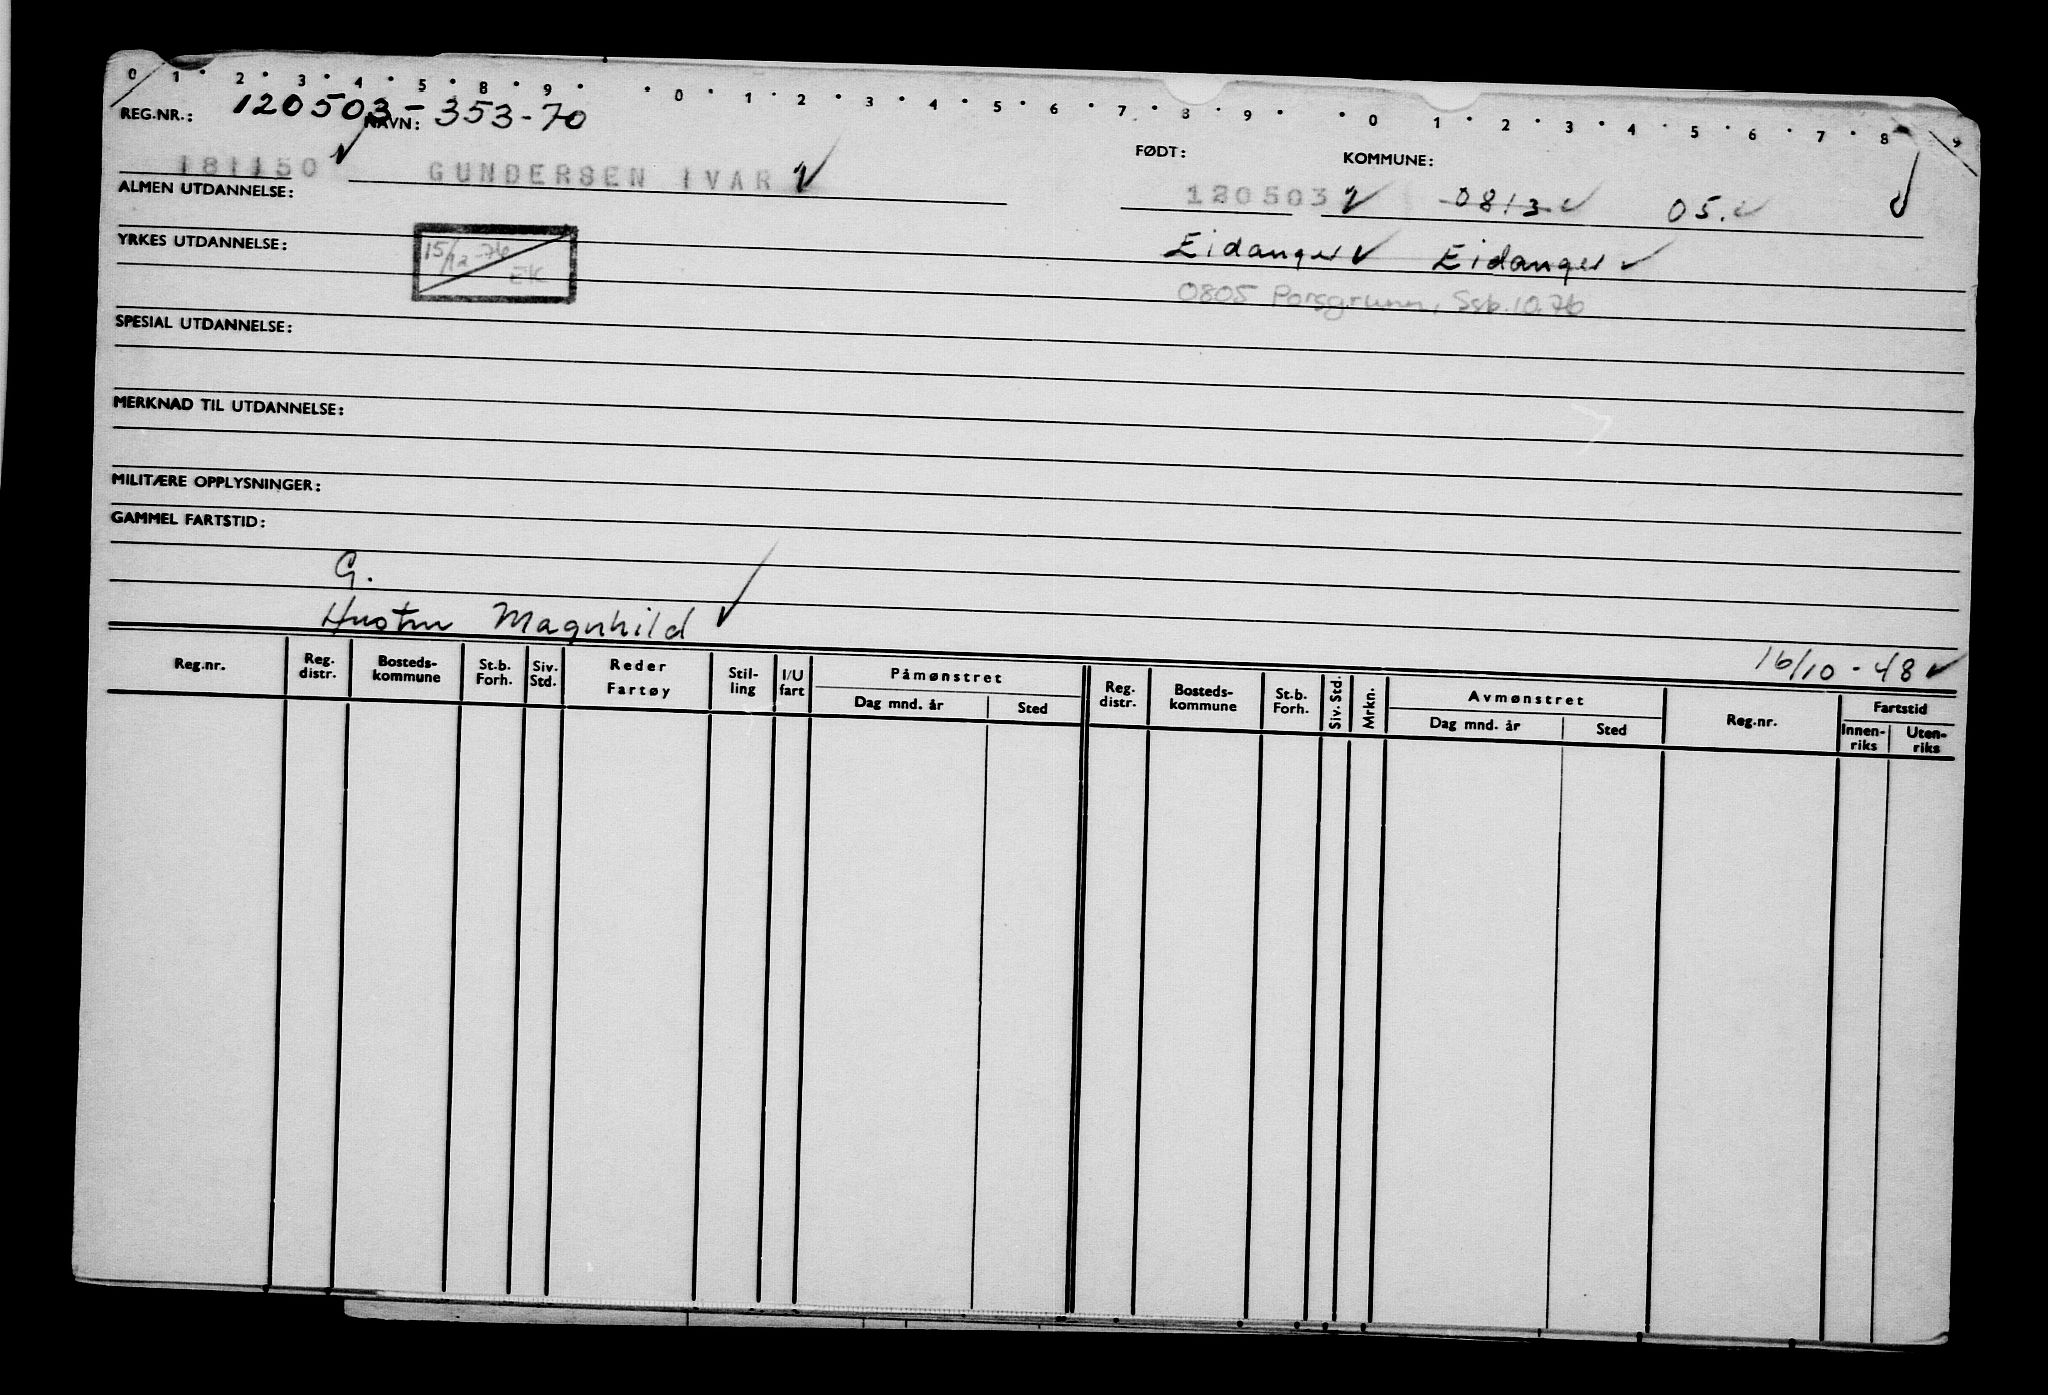 0 1 2 3 4 5 8 9 0 1 2 3 4 5 6 7 8 9 0 1 2 3 4 5 6 7 8 9
REG.NR.: 120503-353-70 NAVN: FØDT: KOMMUNE:
181150 GUNDERSEN IVAR 120503 0813 05.
ALMEN UTDANNELSE:
Eidanger Eidanger
YRKES UTDANNELSE: 15/12-76 EK
0805 Porsgrunn, Ssb.10.76
SPESIAL UTDANNELSE:
MERKNAD TIL UTDANNELSE:
MILITÆRE OPPLYSNINGER:
GAMMEL FARTSTID:
G.
Hustru Magnhild
16/10-48
Reg.nr. Reg. distr. Bosteds-kommune St.b. Forh. Siv. Std. Reder Fartøy Stil-ling I/U fart Påmønstret Dag mnd. år Sted Reg. distr. Bosteds-kommune St.b. Forh. Siv. Std. Mrkn. Avmønstret Dag mnd. år Sted Reg.nr. Fartstid Innen-riks Uten-riks